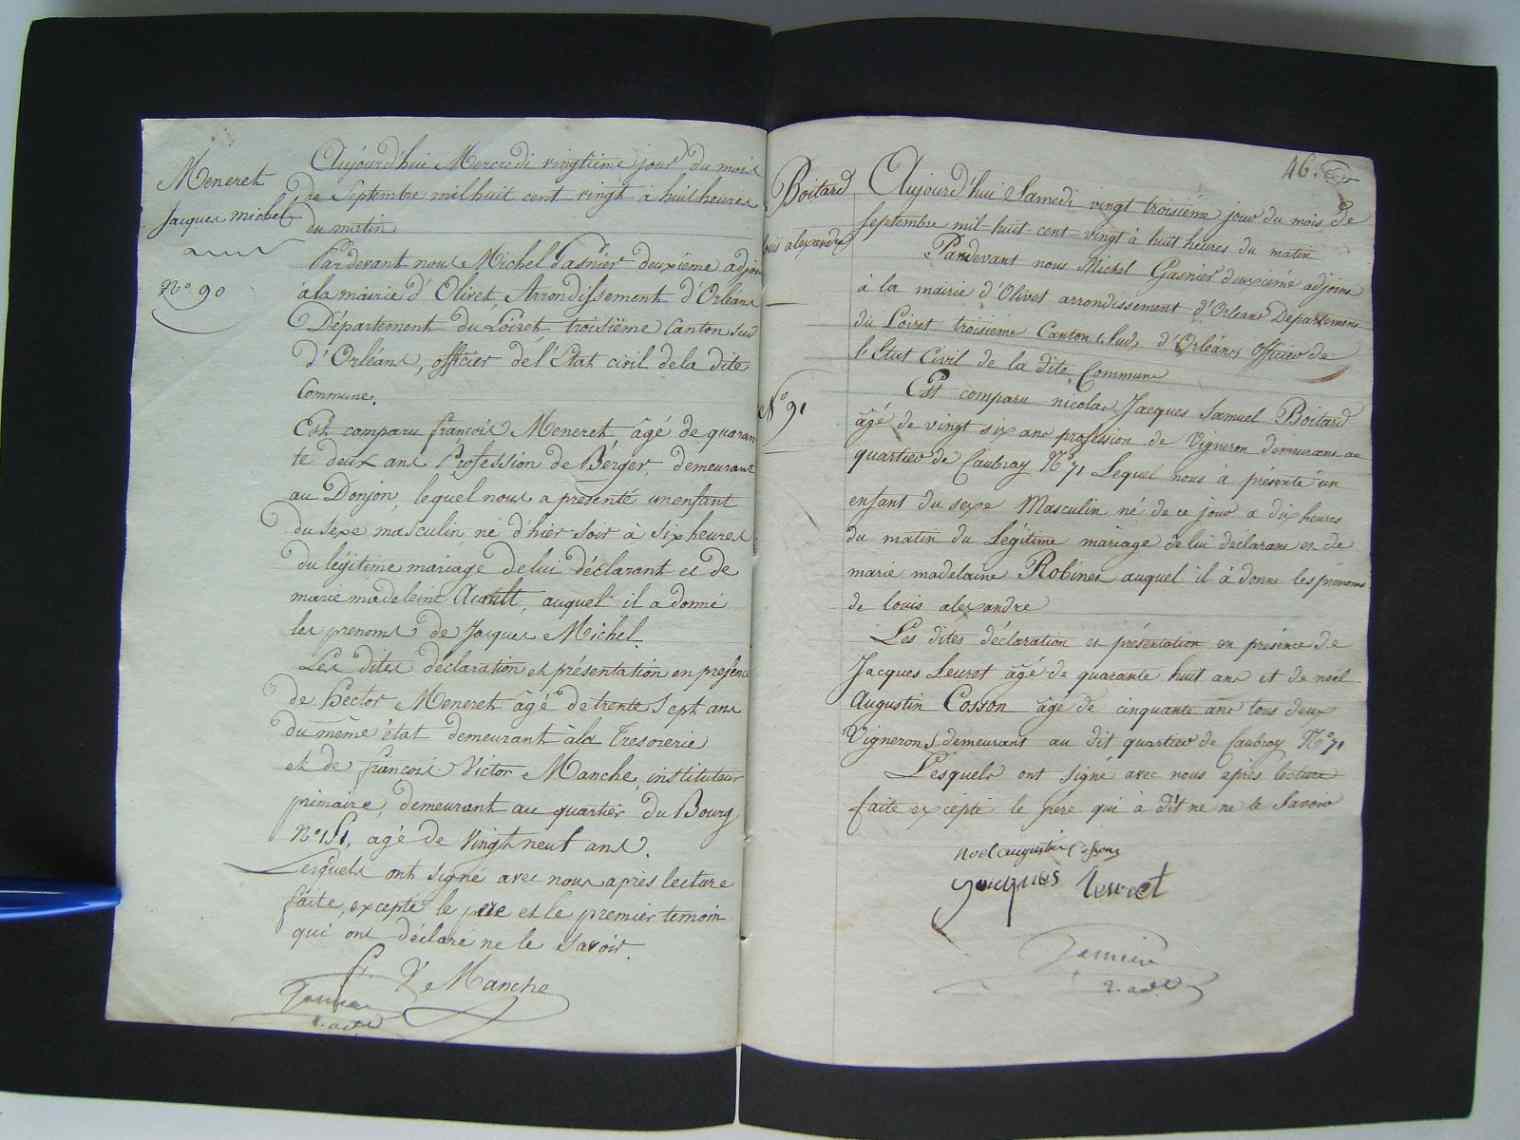 Meneret
Jacques michel
N.o 90
Aujourd'hui Mercredi vingtieme jour du mois
de Septembre mil huit cent vingt à huit heures
du matin
Pardevant nous Michel Gasnier deuxième adjoin
à la mairie d'Olivet, Arrondissement d'Orléans
Département du Loiret troisième Canton sud
d'Orléans, officier de l'Etat civil de la dite
Commune.
Est comparu françois Meneret, âgé de quaran
te deux ans Profession de Berger, demeurant
au Donjon, lequel nous a présenté un enfant
du sexe masculin né d'hier soir à six heures
du légitime mariage de lui déclarant et de
marie madeleine auquel il a donné
les prenoms de Jacques Michel.
Les dites déclaration et présentation en presence
de hector Meneret âgé de trente sept ans
du même état demeurant à la Tresorerie
et de françois Victor Manche, instituteur
primaire, demeurant au quartier du Bourg
N.o agé de Vingt neuf ans.
Lesquels ont signé avec nous après lecture
faite, excepté le pere et le premier temoin
qui ont déclaré ne le savoir.
f. V. Manche
2. adj.
46.
Boitard
louis alexandre
N.o 91
Aujourd'hui Samedi vingt troisième jour du mois de
septembre mil-huit-cent-vingt à huit heures du matin
Pardevant nous Michel Gasnier deuxième adjoint
à la mairie d'Olivet arrondissement d'Orleans Departement
du Loiret troisieme Canton Sud, d'Orléans officier de
l'Etat Civil de la dite Commune
Est comparu nicolas Jacques Samuel Boitard
âgé de vingt six ans profession de Vigneron demeurant au
quartier de Caubray N.o 71 Lequel nous à présenté un
enfant du sexe Masculin né de ce jour a dix heures
du matin du Légitime mariage de lui declarant et de
marie madelaine Robinet auquel il à donné les prénoms
de louis alexandre
Les dites déclaration et présentation en présence de
Jacques Leuret âgé de quarante huit ans et de noël
Augustin Cosson âgé de cinquante ans tous deux
Vignerons demeurans au dit quartier de Caubray N.o 71
Lesquels ont signé avec nous après lecture
faite excepté le pere qui à dit ne ne le Savoir
noel augustin Cosson
Jacques leuret
2. adj.